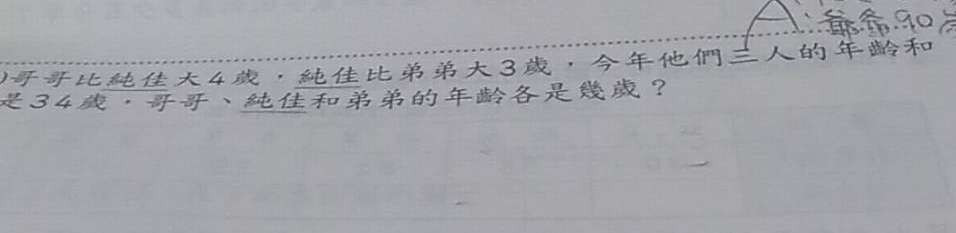 A:爺爺:90歲
)哥哥比純佳大4歲,純佳比弟弟大3歲,今年他們三人的年齡和
是34歲,哥哥、純佳和弟弟的年齡各是幾歲?